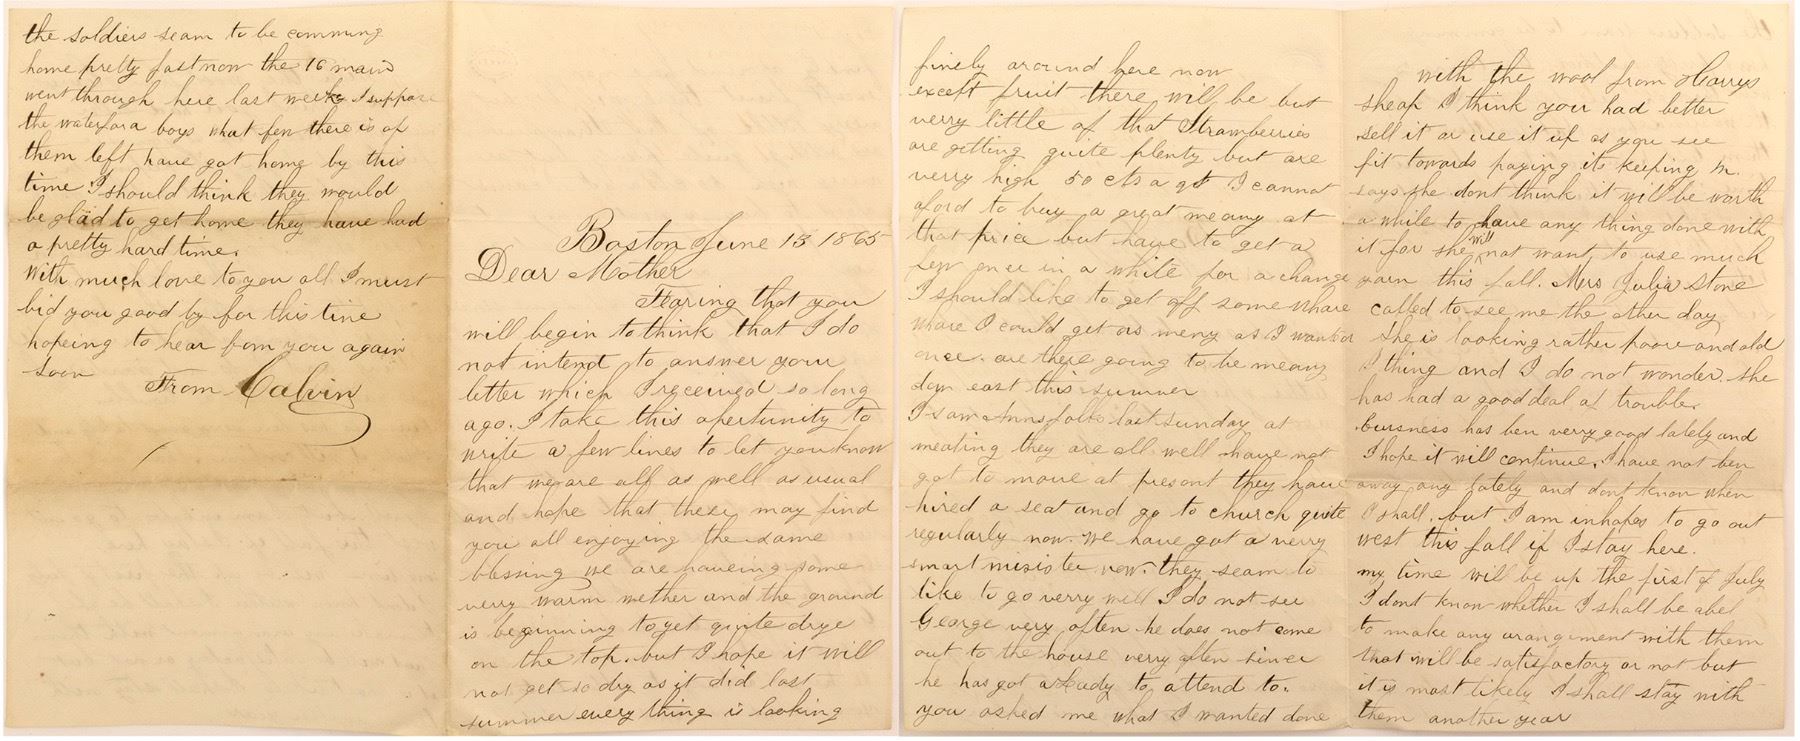 Boston June 13 1865
Dear Mother
Fearing that you
will begin to think that I do
not intend to answer your
letter which I received so long
ago. I take this apertunity to
write a few lines to let you know
that we are all as well as usual
and hope that these may find
you all enjoying the same
blessing we are haveing some
verry warm wether and the ground
is beginning to get quite drye
on the top. but I hope it will
not get so dry as it did last
summer every thing is looking
finely around here now
except fruit there will be but
verry little of that Strawberries
are getting quite plenty but are
verry high 50 cts a qt I cannot
aford to buy a great meany at
that price but have to get a
few once in a while for a change
I should like to get off some whare
whare I could get as meny as I wanted
once. are there going to be meany
down east this summer
I saw Anns folks last sunday at
meating they are all well have not
got to move at present they have
hired a seat and go to church quite
regularly now. we have got a verry
smart minister now. they seam to
like to go verry well I do not see
George very often he does not come
out to the house verry often since
he has got a to attend to.
you asked me what I wanted done
with the wool from Harrys
sheap I think you had better
sell it or use it up as you see
fit towards paying its keeping M.
says she dont think it will be worth
a while to have any thing done with
it for she will not want to use much
yarn this fall. Mrs Julia Stone
called to see me the other day
she is looking rather poore and old
I thing and I do not wonder. she
has had a good deal of trouble.
buisness has ben verry good lately and
I hope it will continue. I have not ben
away any lately and dont know when
I shall. but I am in hopes to go out
west this fall if I stay here.
my time will be up the first of July
I dont know whether I shall be abel
to make any arangement with them
that will be satisfactory or not but
it is most likely I shall stay with
them another year
the soldiers seam to be comming
home pretty fast now the 16 main
went through here last week I suppose
the waterford boys what few there is of
them left have got home by this
time I should think they would
be glad to get home they have had
a pretty hard time.
With much love to you all I must
bid you good by for this time
hopeing to hear from you again
soon
From Calvin